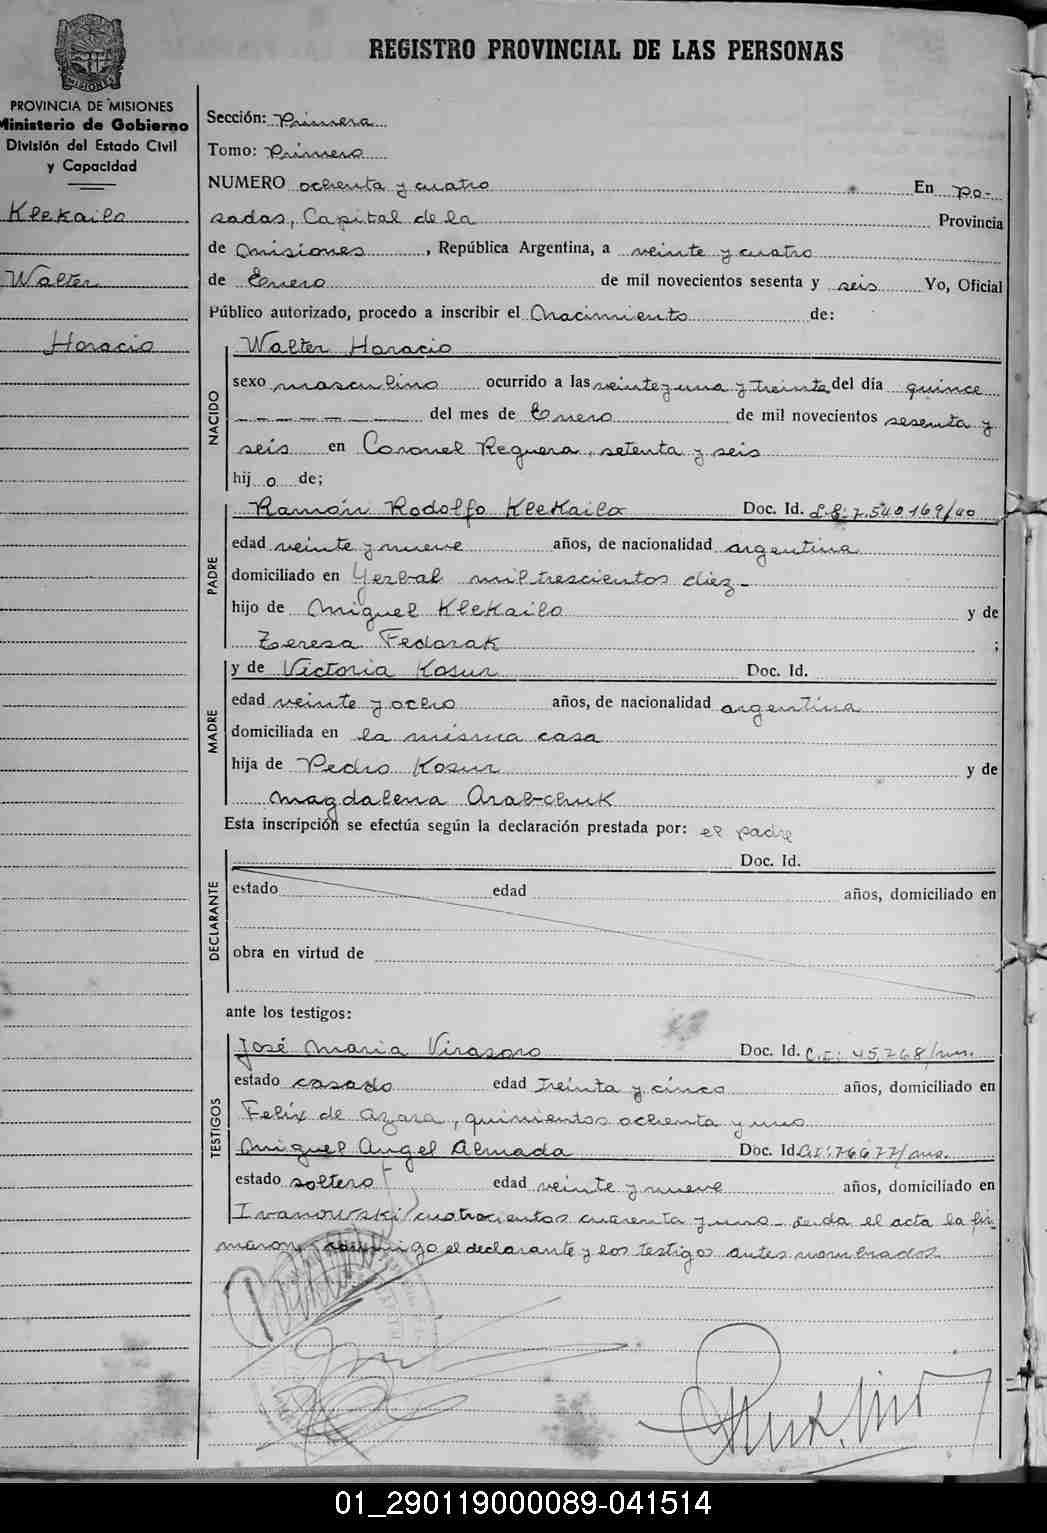 REGISTRO PROVINCIAL DE LAS PERSONAS
PROVINCIA DE MISIONES
Ministerio de Gobierno
División del Estado Civil
y Capacidad
Klekailo
Walter
Horacio
Sección: Primera
Tomo: Primero
NUMERO ochenta y cuatro En Po-
sadas, Capital de la Provincia
de Misiones, República Argentina, a veinte y cuatro
de Enero de mil novecientos sesenta y seis Yo, Oficial
Público autorizado, procedo a inscribir el Nacimiento de:
NACIDO
Walter Horacio
sexo masculino ocurrido a las veinte y una y treinta del día quince
del mes de Enero de mil novecientos sesenta y
seis en Coronel Reguera, setenta y seis
hijo de;
PADRE
Ramón Rodolfo Klekailo Doc. Id. L.E: 7.540.169/40
edad veinte y nueve años, de nacionalidad argentina
domiciliado en Yerbal mil trescientos diez-
hijo de Miguel Klekailo y de
Teresa Fedorak ;
MADRE
y de Victoria Kosur Doc. Id.
edad veinte y ocho años, de nacionalidad argentina
domiciliada en la misma casa
hija de Pedro Kosur y de
Magdalena Arabchuk
Esta inscripción se efectúa según la declaración prestada por: el padre
DECLARANTE
Doc. Id.
estado edad años, domiciliado en
obra en virtud de
ante los testigos:
TESTIGOS
José Maria Virasoro Doc. Id. C.I: 45.768/mns.
estado casado edad treinta y cinco años, domiciliado en
Felix de Azara, quinientos ochenta y uno
Miguel Angel Almada Doc. Id. C.I: 76677/mns.
estado soltero edad veinte y nueve años, domiciliado en
Ivanowski cuatrocientos cuarenta y uno- Leida el acta la fir-
maron conmigo el declarante y los testigos antes nombrados.
01_290119000089-041514